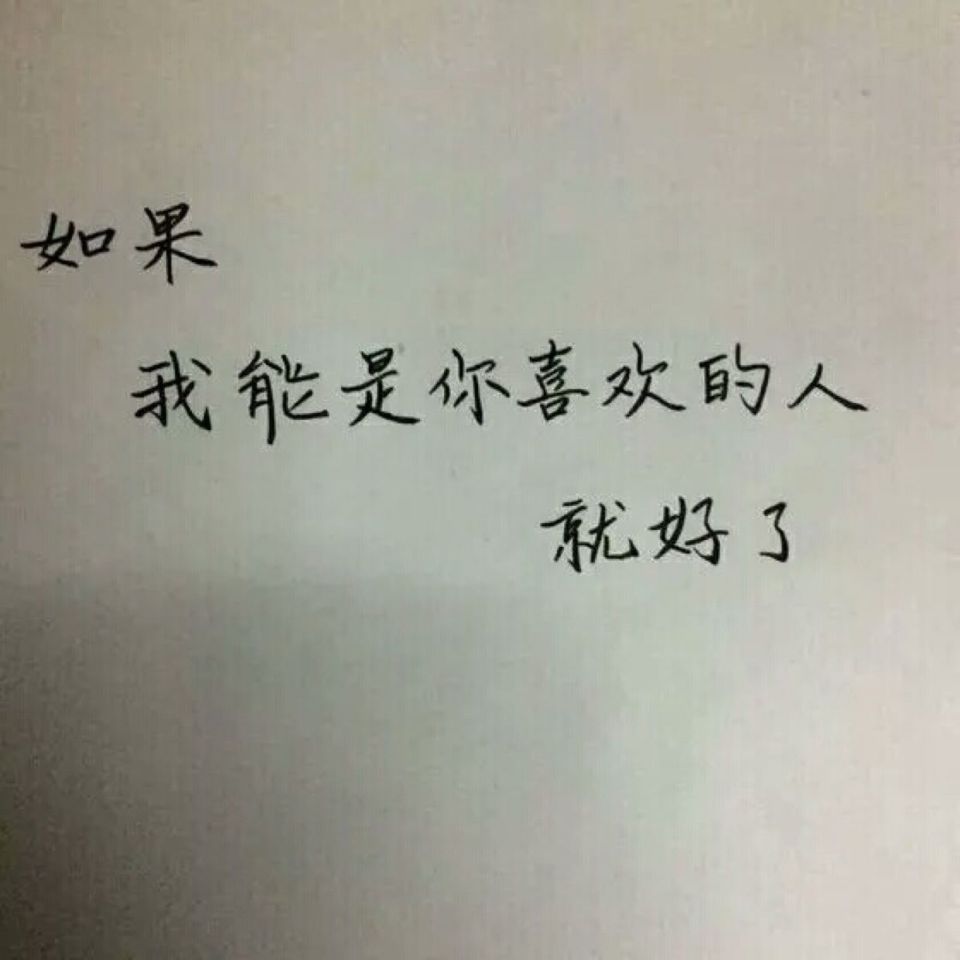 如果
我能是你喜欢的人
就好了